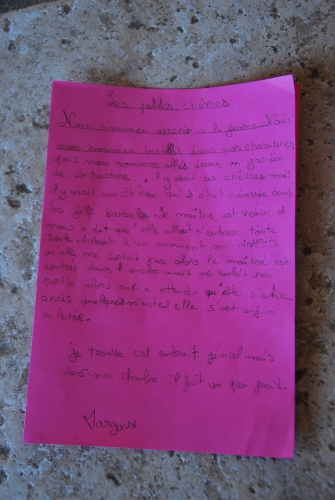 Les petites chèvres
Nous sommes arrivés a la ferme. Nous
nous sommes installés dans nos chambres
puis nous sommes allés dans un jardin
de un hectare. Il y avait des chèvres mais
il y avait une chèvre qui s'était coincée dans
les fils barbelés. le maître est venu et
nous a dit qu'elle allait s'enlever toute
seule. au un moment ont
qu'elle ne sortait pas alors le maître est
rentrés dans l'enclos mais ne voulait pas
sortir alors ont a attendu qu'elle s'enlève
après quelques minutes elle s'est enfin
enlevée.
Je trouve cet endroit génial mais
dans ma chambre il fait un peu froid.
Margaux